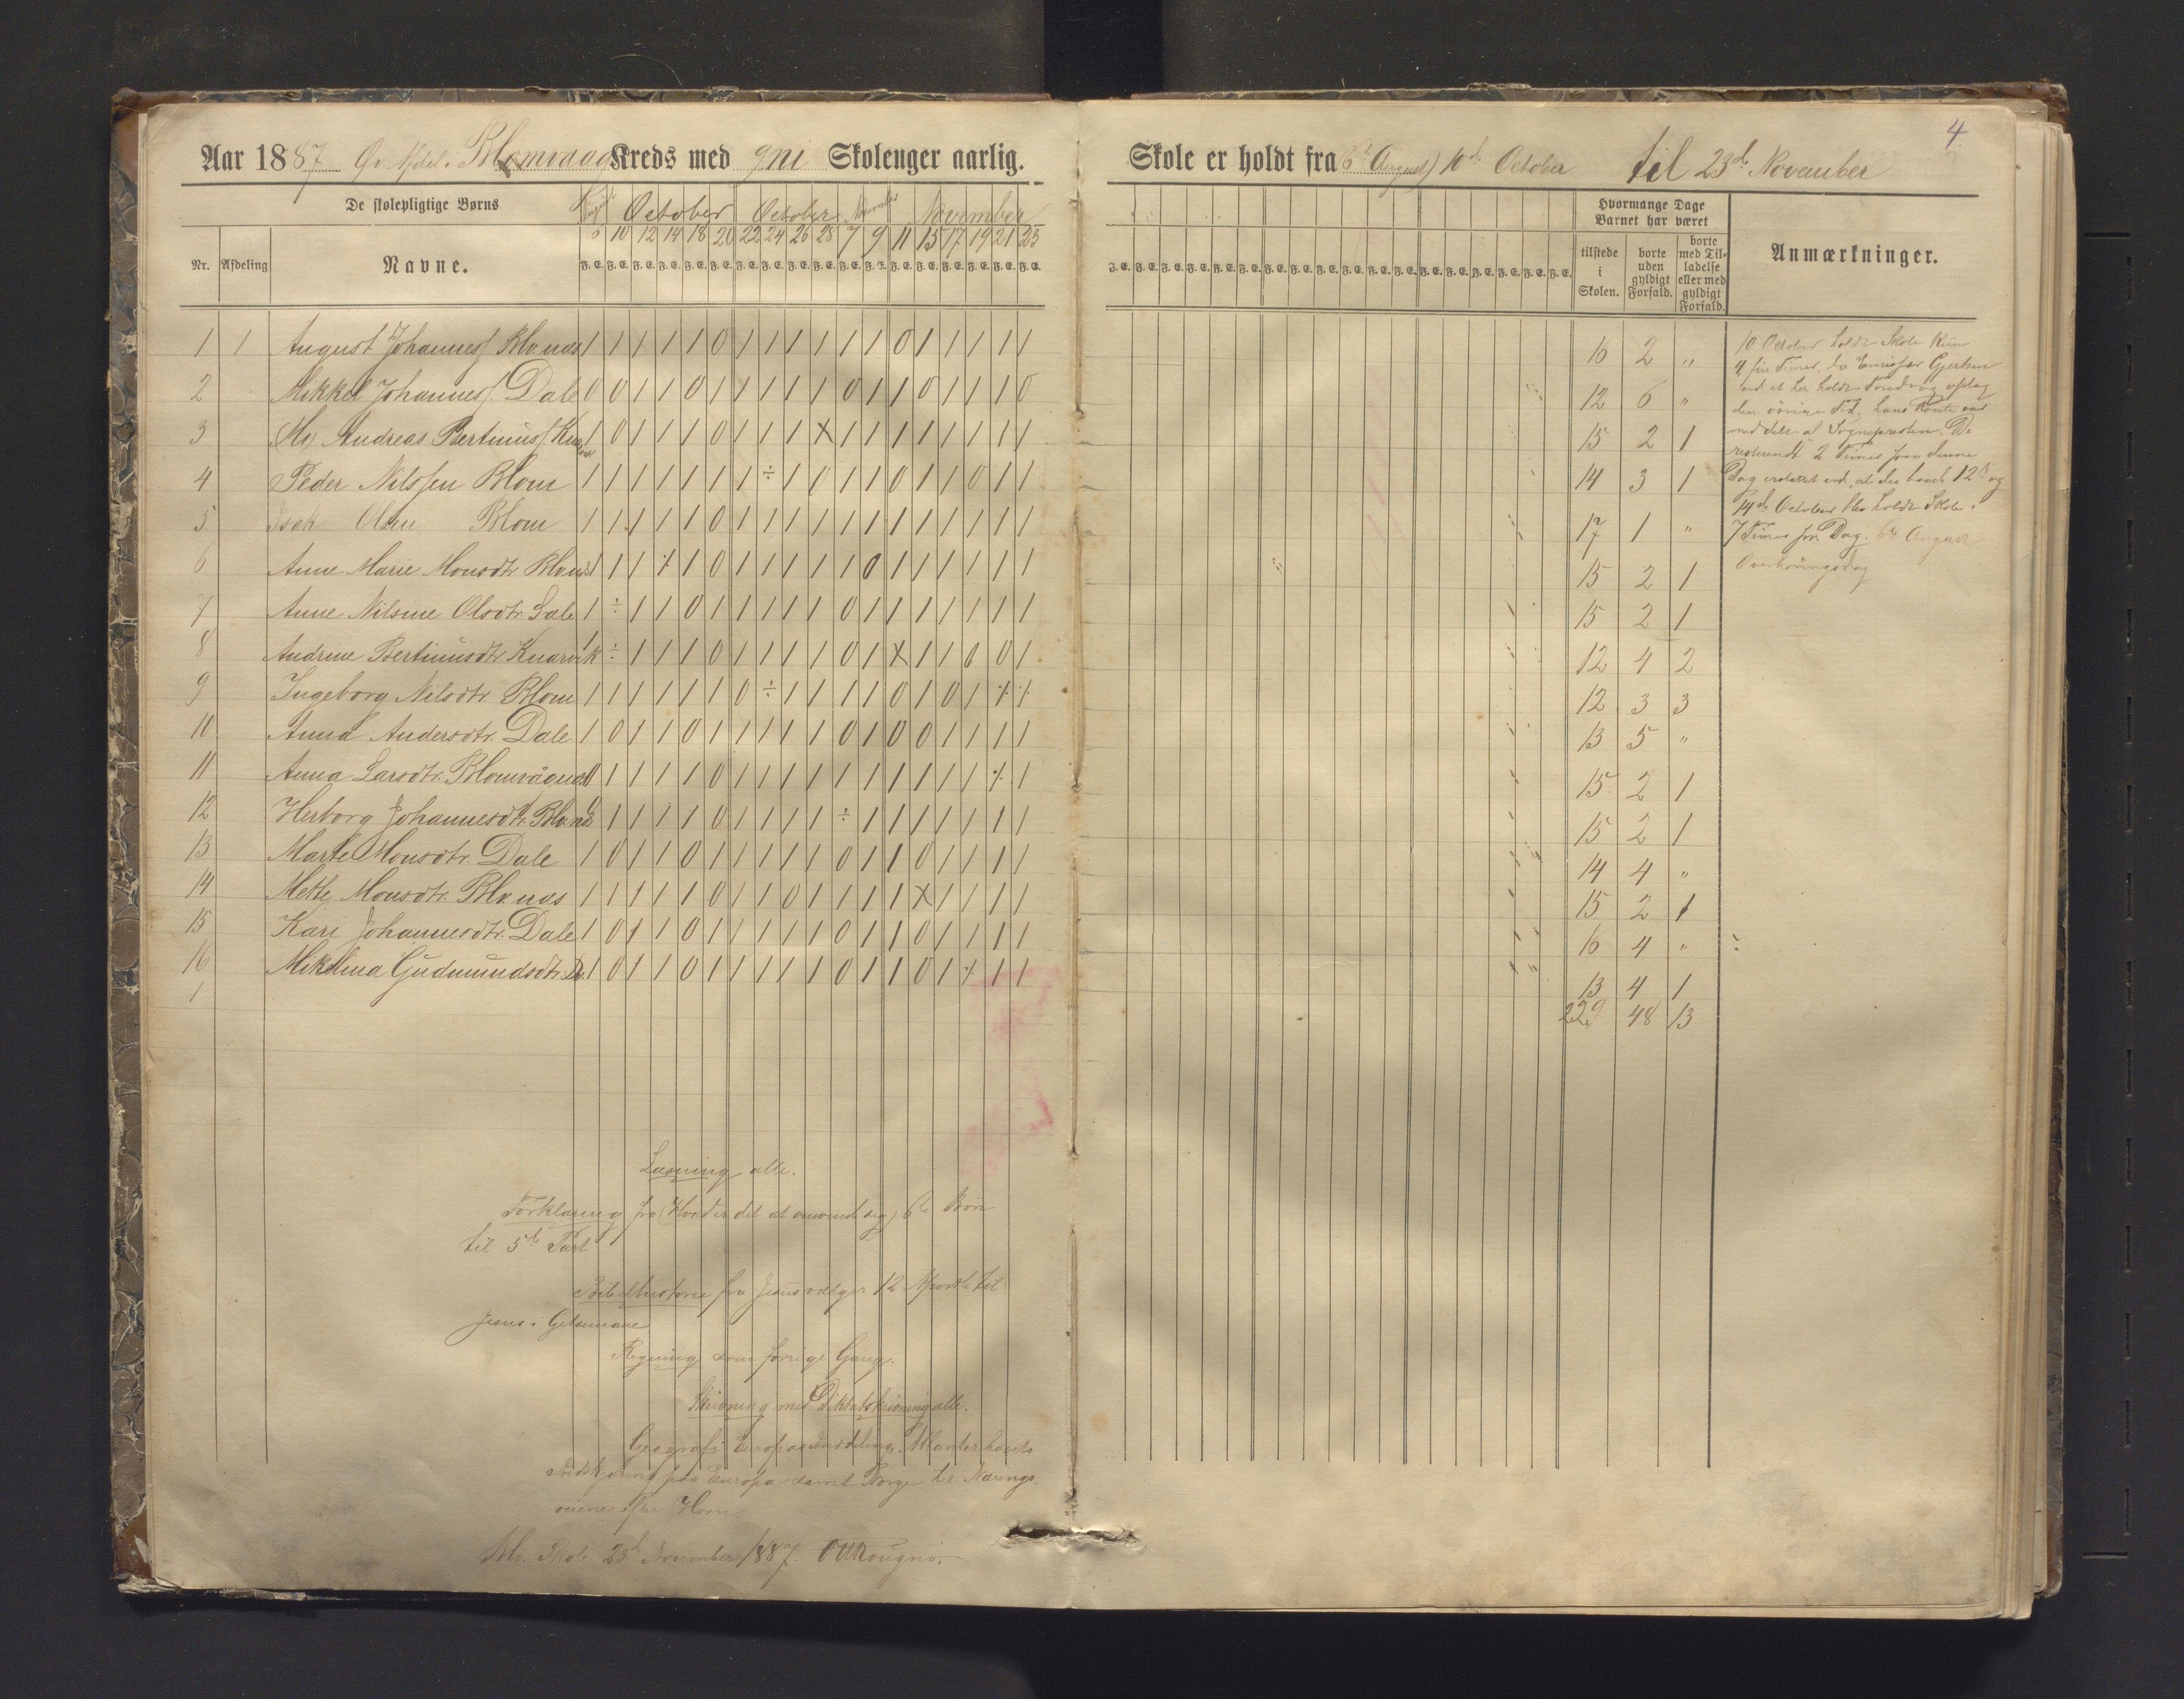 4
Aar 1887 Øv. Afdel. Blomvaag Kreds med 9ni Skolenger aarlig.
Skole er holdt fra (6te August) 10de October til 23de November
De skolepligtige Børns
August October October November November
Hvormange Dage Barnet har været
Nr. Afdeling Navne.
6 10 12 14 18 20 22 24 26 28 7 9 11 15 17 19 21 23
tilstede i Skolen. borte uden gyldigt Forfald. borte med Tilladelse eller med gyldigt Forfald.
Anmærkninger.
1 1 August Johannesf. Blv.næs 1 1 1 1 1 0 1 1 1 1 1 1 0 1 1 1 1 1 16 2 "
2 Mikkel Johannesf. Dale 0 0 1 1 0 1 1 1 1 1 0 1 1 0 1 1 1 0 12 6 "
3 Andreas Bertinusf. Knarvik 1 0 1 1 1 0 1 1 1 X 1 1 1 1 1 1 1 1 15 2 1
4 Peder Nilssen Blom 1 1 1 1 1 1 1 ÷ 1 0 1 1 0 1 1 0 1 1 14 3 1
5 Isak Olsen Blom 1 1 1 1 1 0 1 1 1 1 1 1 1 1 1 1 1 1 17 1 "
6 Anne Marie Monsdtr. Blv.næs 1 1 1 ⁒ 1 0 1 1 1 1 1 0 1 1 1 1 1 1 15 2 1
7 Anne Nilsine Olsdtr. Dale 1 ÷ 1 1 0 1 1 1 1 1 0 1 1 1 1 1 1 1 15 2 1
8 Andrine Bertinusdtr. Knarvik 1 ÷ 1 1 1 0 1 1 1 1 0 1 X 1 1 0 0 1 12 4 2
9 Ingeborg Nilsdtr. Blom 1 1 1 1 1 1 0 ÷ 1 1 1 1 0 1 0 1 ⁒ ⁒ 12 3 3
10 Anna Andersdtr. Dale 1 0 1 1 0 1 1 1 1 1 0 1 0 0 1 1 1 1 13 5 "
11 Anna Larsdtr. Blomvågnæs 0 1 1 1 1 0 1 1 1 1 1 1 1 1 1 1 ⁒ 1 15 2 1
12 Herborg Johannesdtr. Blv.næs 0 1 1 1 1 0 1 1 1 1 ÷ 1 1 1 1 1 1 1 15 2 1
13 Marte Monsdtr. Dale 1 0 1 1 0 1 1 1 1 1 0 1 1 0 1 1 1 1 14 4 "
14 Mette Monsdtr. Blv.næs 1 1 1 1 1 0 1 1 0 1 1 1 1 X 1 1 1 1 15 2 1
15 Kari Johannesdtr. Dale 1 0 1 1 0 1 1 1 1 1 0 1 1 0 1 1 1 1 16 4 "
16 Mikelina Gudmundsdtr. D. 1 0 1 1 0 1 1 1 1 1 0 1 1 0 1 ⁒ 1 1 13 4 1
1
229 48 13
10 October holdt Skole kun
4 fire Timer, da Emissær Gjertsen
ved et her holdt Foredrag optog
den övrige Tid, hans Route var
meddelt af Sognepresten. De
resterende 2 Timer for denne
Dag erstattet ved, at der baade 12te og
14de October blev holdt Skole
7 Timer pr. Dag. 6te August
Overhöringsdag
Læsning alle.
Forklaring fra (Hvad er det at omvende sig) 6te Bön
til 5te Part
Bibelhistorie fra Jesus vælger 12 Apostle til
Jesus i Getsemane
Regning som forrige Gang.
Skrivning med Diktatskrivning alle.
Geografi Europas Inddeling, Atlanterhavets
Indskjæring paa Europa samt Norge til Nærings
veiene efter Horn
Blv. Skole 23de November 1887.